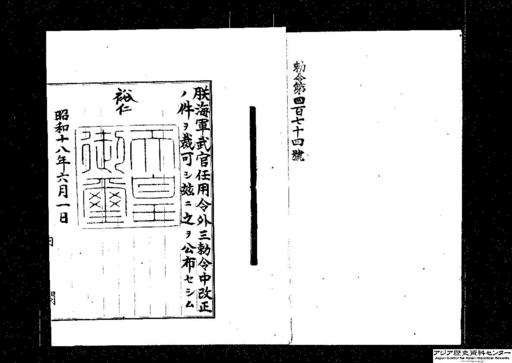 勅令第四百七十四號
朕海軍武官任用令外三勅令中改正
ノ件ヲ裁可シ玆ニ之ヲ公布セシム
裕仁
天皇
御璽
昭和十八年六月一日
内閣
アジア歴史資料センター
Japan Center for Asian Historical Records